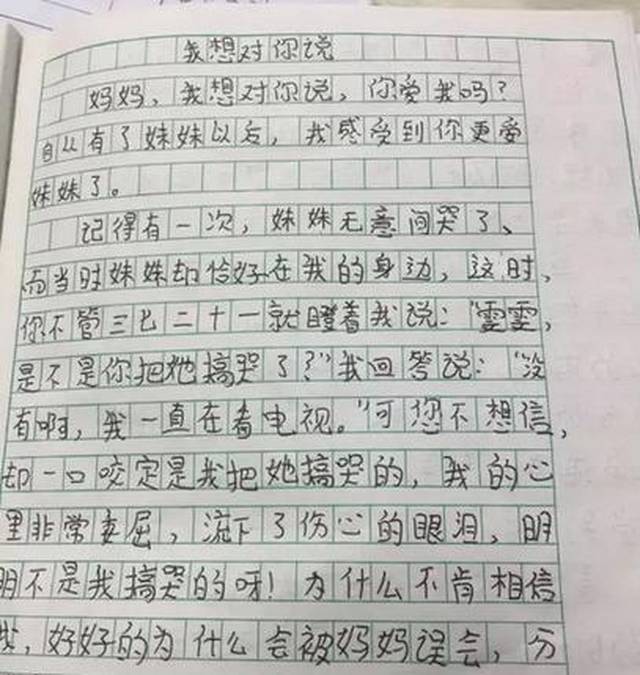 我想对你说
妈妈，我想对你说，你爱我吗？
自从有了妹妹以后，我感受到你更爱
妹妹了。
记得有一次，妹妹无意间哭了、
而当时妹妹却恰好在我的身边，这时，
你不管三七二十一就瞪着我说：“雯雯，
是不是你把她搞哭了？”我回答说：“没
有啊，我一直在看电视。”可您不想信，
却一口咬定是我把她搞哭的，我的心
里非常委屈，流下了伤心的眼泪，明
明不是我搞哭的呀！为什么不肯相信
我，好好的为什么会被妈妈误会，分